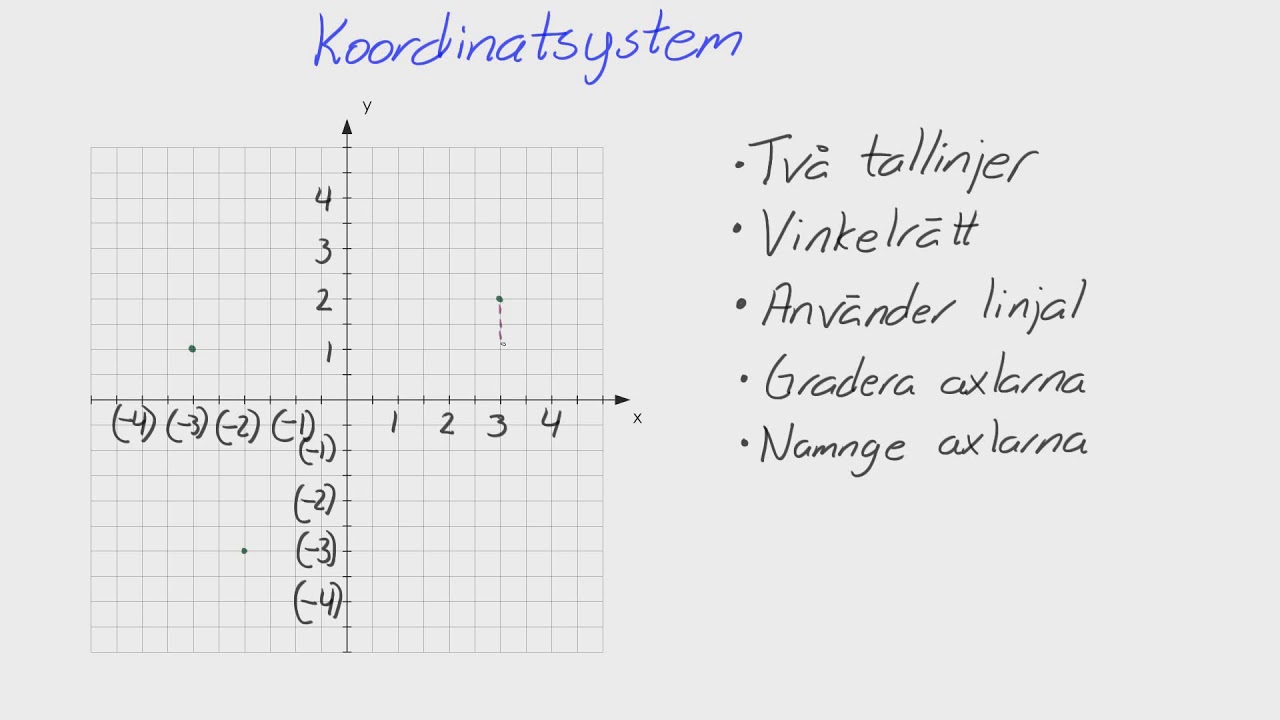 Koordinatsystem
y
• Två tallinjer
• Vinkelrätt
• Använder linjal
• Gradera axlarna
• Namnge axlarna
4
3
2
1
(-4) (-3) (-2) (-1) 1 2 3 4 x
(-1)
(-2)
(-3)
(-4)